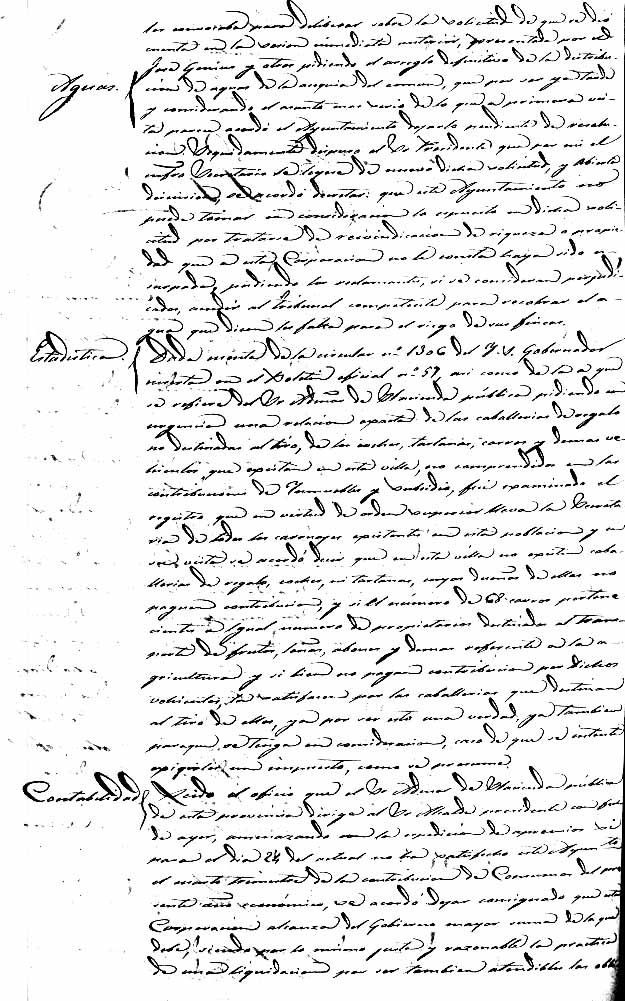 los convocaba para deliberar sobre la solicitud de que se dió
cuenta en la sesion inmediata anterior, presentada por el
José Garcias y otros pidiendo el arreglo definitivo de la distribu-
Aguas. cion de aguas de la acequia del comun, que por ser ya tarde
y considerando el asunto mas serio de lo que a primera vis-
ta parece acordó el Ayuntamiento dejarlo pendiente de resolu-
cion. Seguidamente dispuso el Sr. Presidente que por mi el
infro Secretario se leyera de nuevo dicha solicitud, y abierta
discusion, se acordó decretar: que este Ayuntamiento no
puede tomar en consideracion lo espuesto en dicha soli-
citud por tratarse de reivindicacion de riqueza o propie-
dad que a esta Corporacion no le consta haya sido u-
surpada, pudiendo los reclamantes, si se consideran perjudi-
cados, acudir al Tribunal competente para recobrar el a-
gua que dicen les falta para el riego de sus fincas.
Estadistica. Dada cuenta de la circular nº 1306 del Y. S. Gobernador
inserta en el Boletin oficial nº 57, asi como de la a que
se refiere del Sr. Admor. de Hacienda pública pidiendo con
urgencia una relacion exacta de las caballerias de regalo
no destinadas al tiro, de los coches, tartanas, carros y demas ve-
hiculos que existen en esta villa, no comprendidos en las
contribuciones de Inmuebles y Subsidio, fué examinado el
registro que en virtud de orden superior lleva la Secreta-
ria de todos los carruages existentes en esta poblacion y en
su vista se acordó decir que en esta villa no existen caba-
llerias de regalo, coches, ni tartanas, cuyos dueños de ellas no
paguen contribucion, y si el número de 68 carros pertene-
cientes a igual número de propietarios destinados al trans-
porte de frutos, leñas, abonos y demas referente a la a-
gricultura y si bien no pagan contribucion por dichos
vehiculos, la satisfacen por las caballerias que destinan
al tiro de ellos, ya por ser esto una verdad, ya tambien
paraque se tenga en consideracion, caso de que se intente
exigirles un impuesto, como se presume.
Contabilidad Leido el oficio que el Sr. Admor. de Hacienda pública
de esta provincia dirige al Sr. Alcalde presidente con fecha
de ayer, amenazando con la espedicion de apremios si
para el dia 24 del actual no ha satisfecho este Ayunto.
el cuarto trimestre de la contribucion de Consumos del pre-
sente año económico, se acordó dejar consignado que esta
Corporacion alcanza del Gobierno mayor suma de la que
debe, siendo por lo mismo justa y razonable la practica
de una liquidacion por ser tambien atendibles las obli-